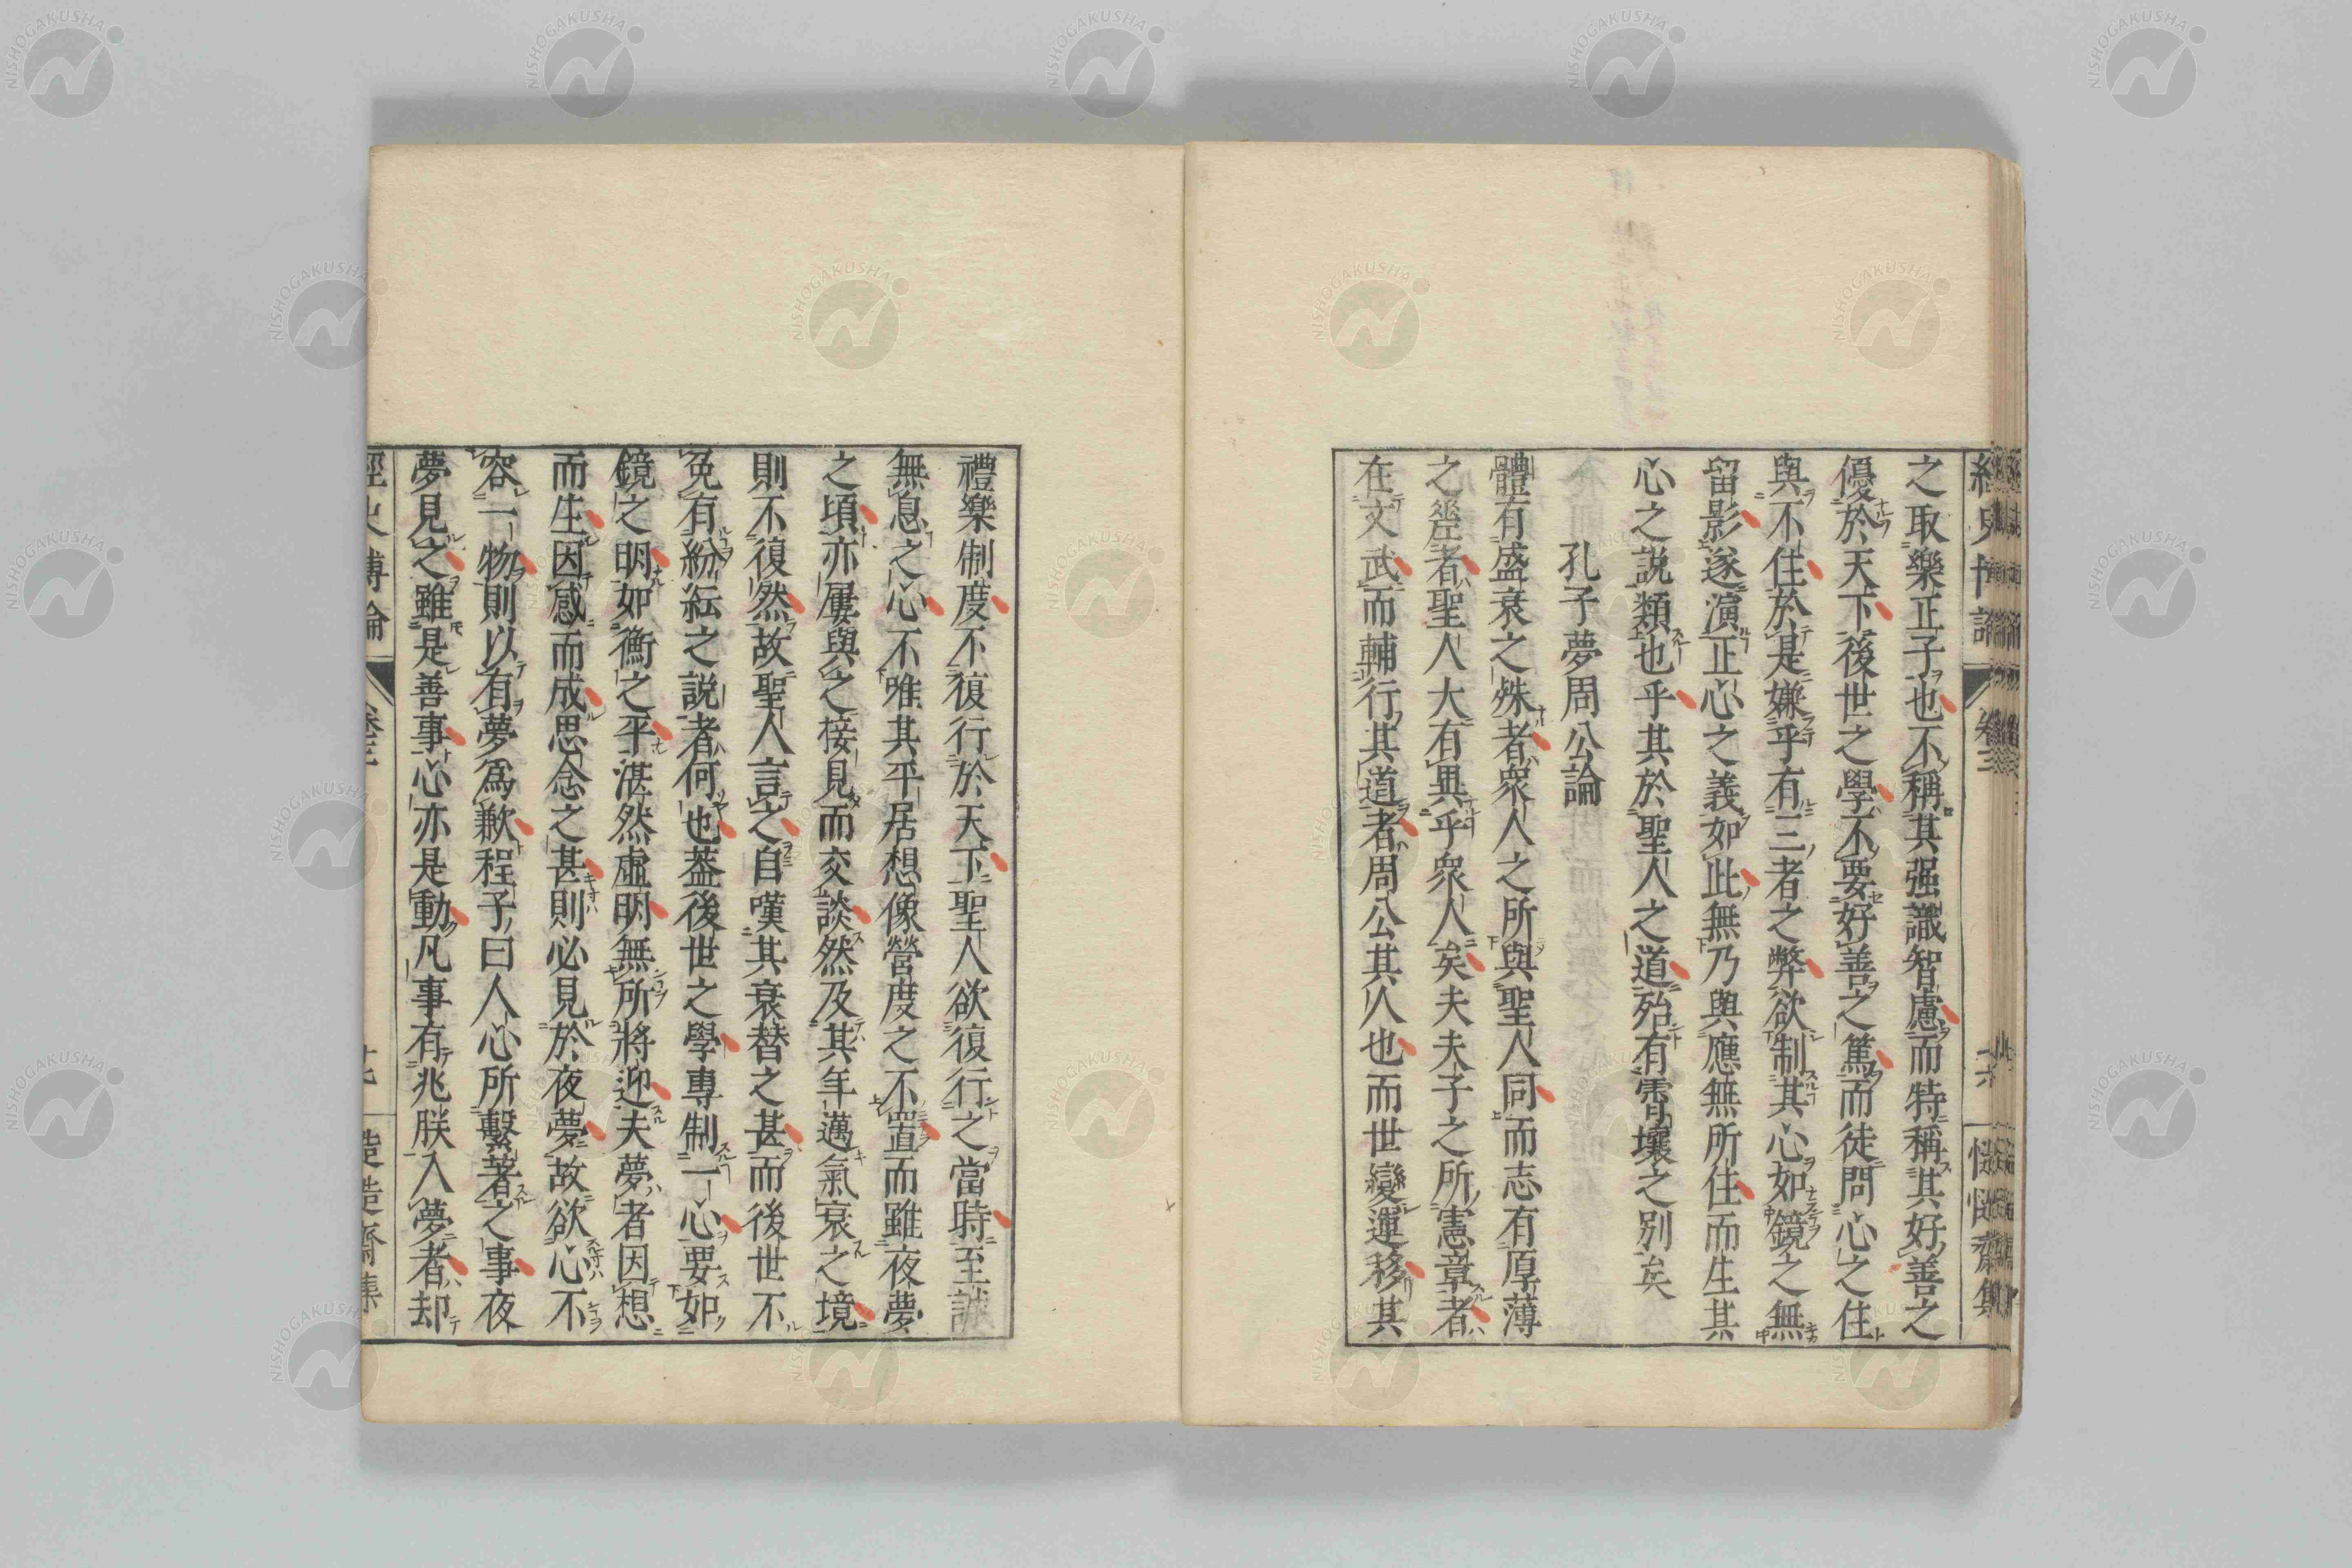 之取樂正子也不稱其强識智慮而特稱其好善之
優於天下後世之學不要好善之篤而徒問心之住
與不住於是嫌乎有三者之弊欲制其心如鏡之無
留影遂演正心之義如此無乃與應無所住而生其
心之說類也乎其於聖人之道殆有霄壤之別矣
孔子夢周公論
體有盛衰之殊者衆人之所與聖人同而志有厚薄
之差者聖人大有異乎衆人矣夫夫子之所憲章者
在文武而輔行其道者周公其人也而世變運移其
禮樂制度不復行於天下聖人欲復行之當時至誠
無息之心不唯其平居想像營度之不置而雖夜夢
之頃亦屢與之接見而交談然及其年邁氣衰之境
則不復然故聖人言之自嘆其衰替之甚而後世不
免有紛紜之說者何也蓋後世之學專制一心要如
鏡之明如衡之平湛然虛明無所將迎夫夢者因想
而生因感而成思念之甚則必見於夜夢故欲心不
容一物則以有夢爲歉程子曰人心所繫著之事夜
夢見之雖是善事心亦是動凡事有兆朕入夢者却
經史博論
卷三